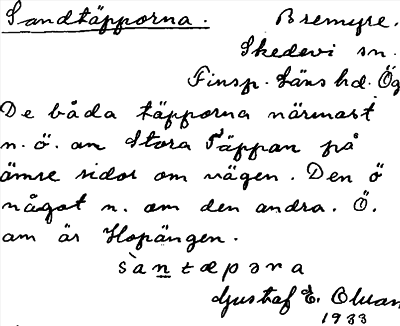 Sandtäpporna. Bremyre.
Skedevi sn.
Finsp. läns hd. Ög
De båda täpporna närmast
n. ö. om Stora Täppan på
ömse sidor om vägen. Den ö
något n. om den andra. Ö.
om är Hopängen.
sàntæpəna
Gustaf E. Olsan
1933